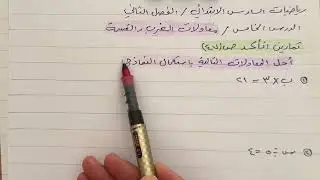 رياضيات السادس الابتدائي / الفصل الثاني
الدرس الخامس / معادلات الضرب والقسمة
تمارين أتأكد ص(٤٧)
أحل المعادلات التالية باستكمال النماذج
① ب × ٣ = ٢١
② س ÷ ٥ = ٤